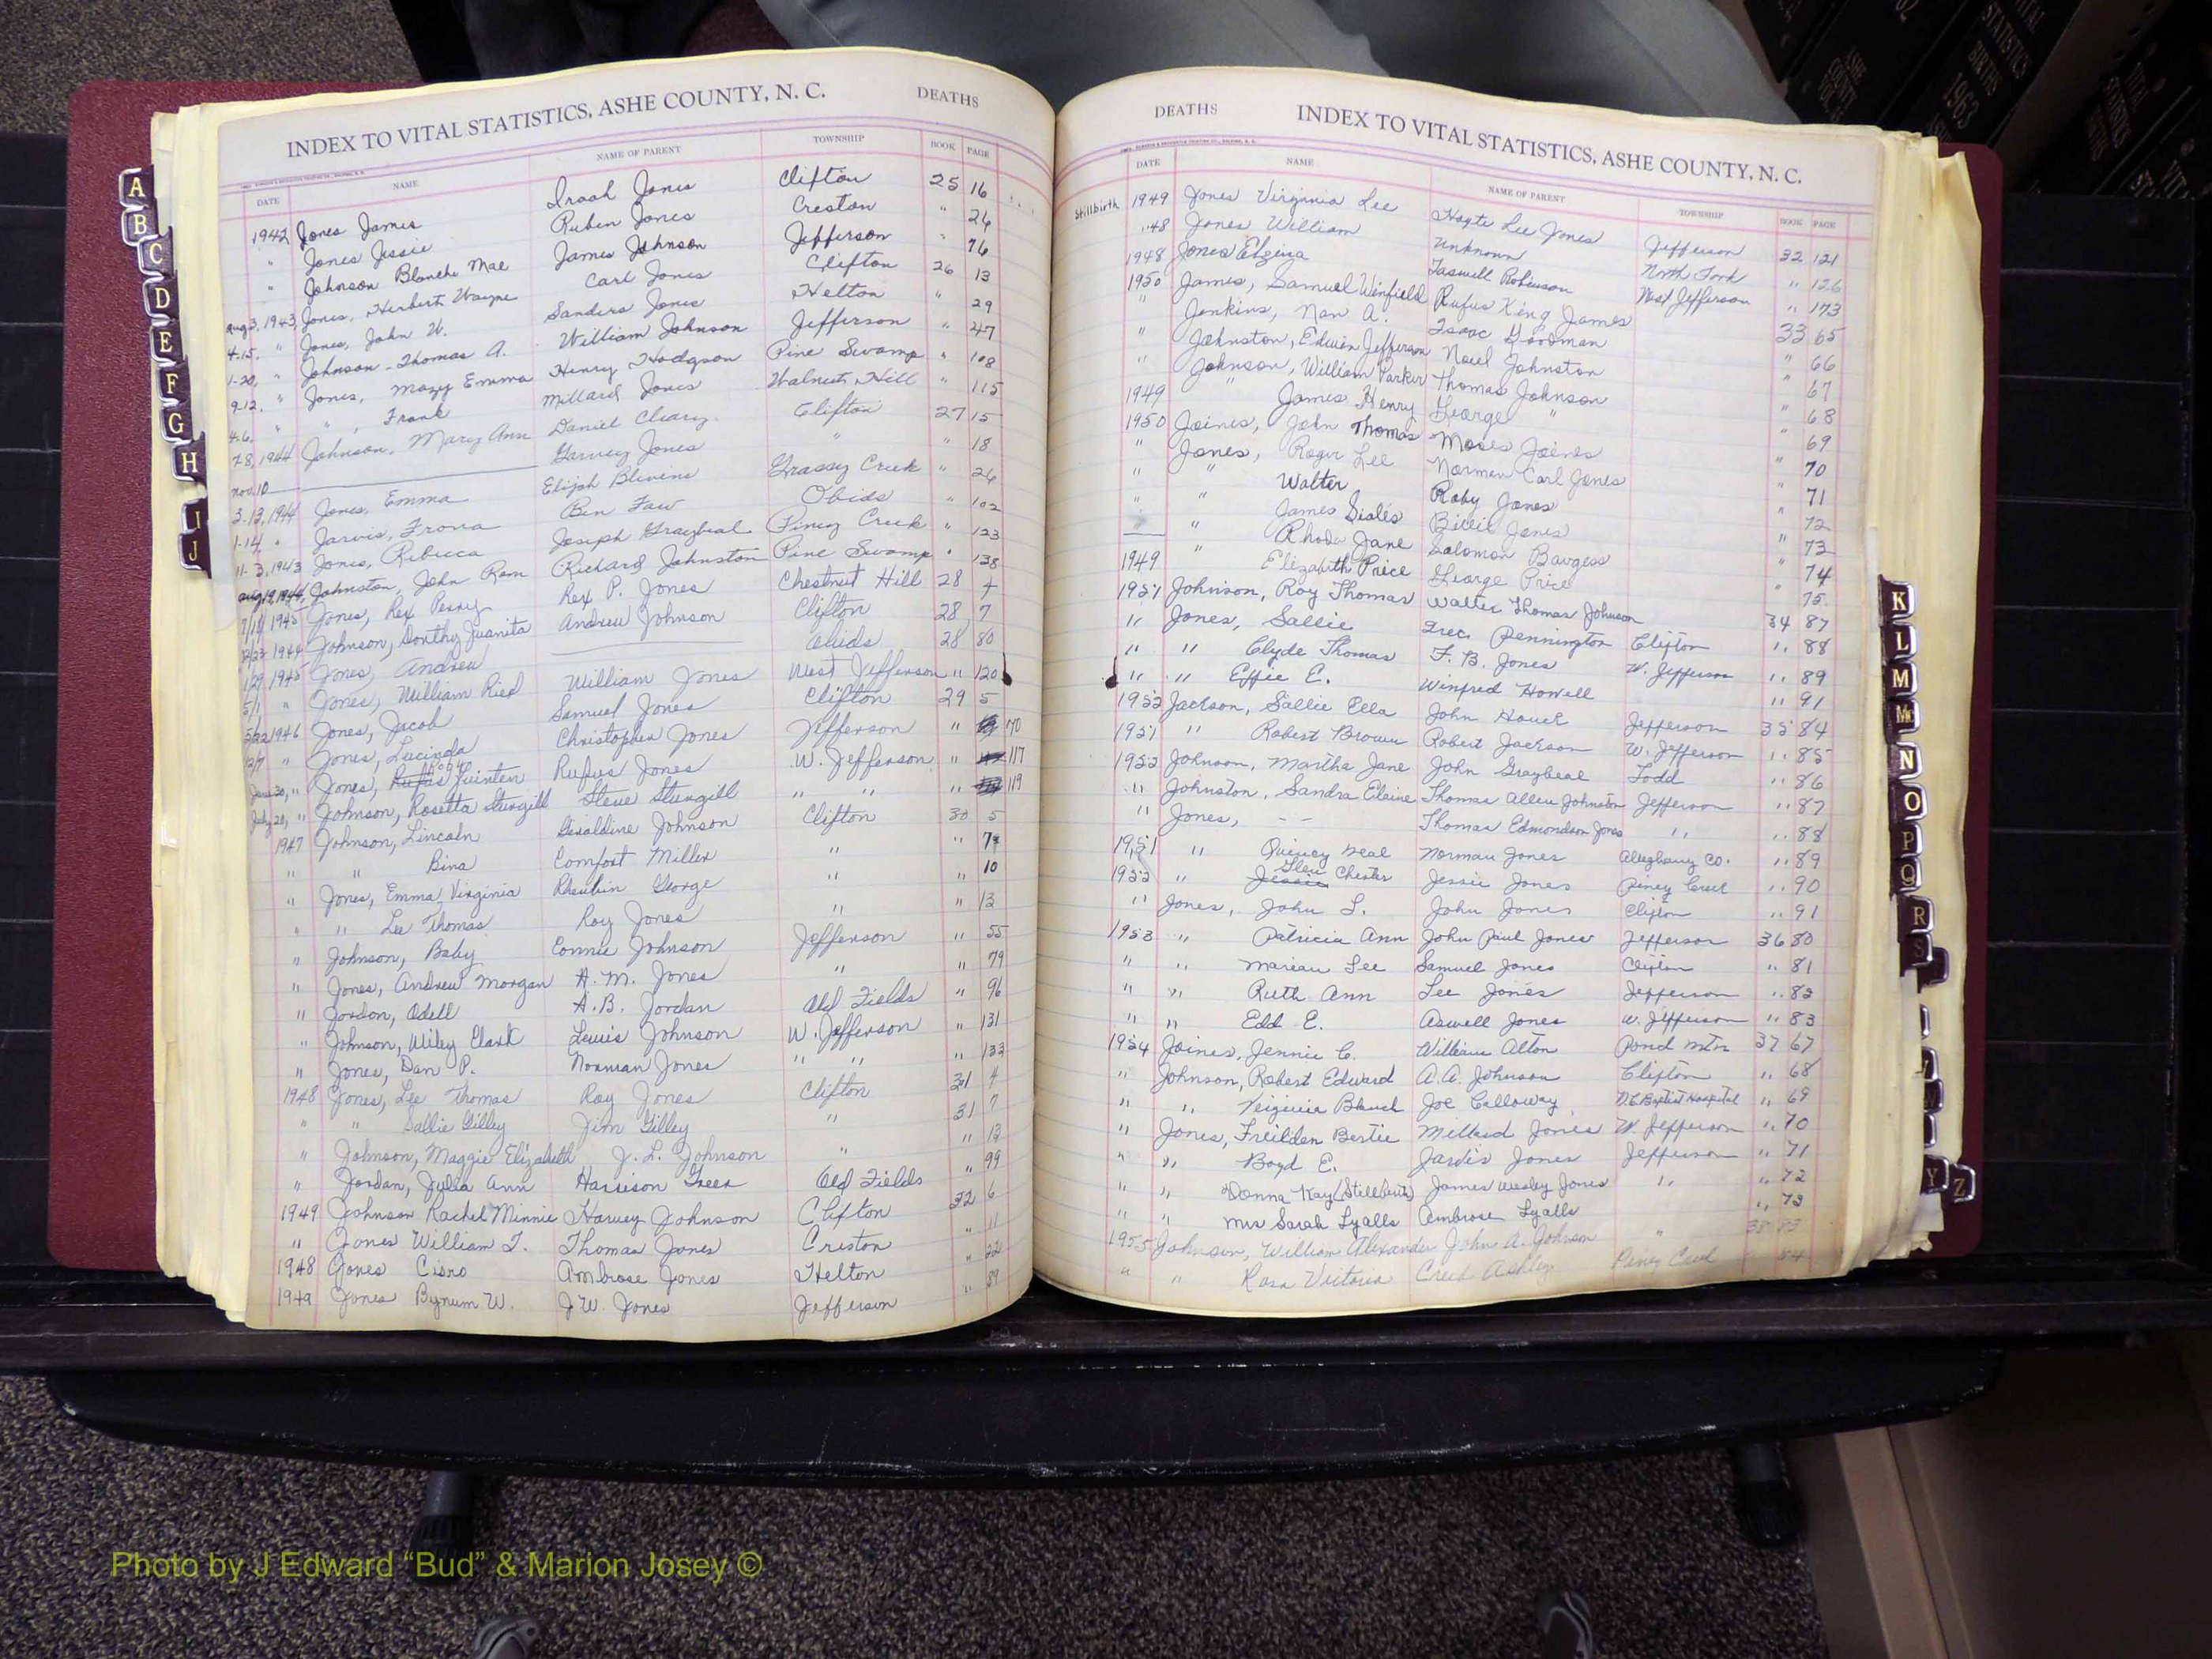 INDEX TO VITAL STATISTICS, ASHE COUNTY, N. C. DEATHS
DATE NAME NAME OF PARENT TOWNSHIP BOOK PAGE
1942 Jones James Jones Clifton 25 16
" Jones Jessie Ruben Jones Creston " 26
" Johnson Blanche Mae James Johnson Jefferson " 76
Aug 3, 1943 Jones, Herbert Wayne Carl Jones Clifton 26 13
4-15, " Jones, John W. Sanders Jones Helton " 29
1-20, " Johnson - Thomas A. William Johnson Jefferson " 47
9-12, " Jones, Mozy Emma Henry Hodgson Pine Swamp " 108
4-6, " " , Frank Millard Jones Walnut Hill " 115
7-8, 1944 Johnson, Mary Ann Daniel Cleary Clifton 27 15
Nov. 10 Garvey Jones " " 18
3-13, 1944 Jones, Emma Elijah Blevins Grassy Creek " 26
1-14, " Jarvis, Frona Ben Faw Obids " 102
11-3, 1943 Jones, Rebecca Joseph Graybeal Piney Creek " 123
Aug 19, 1944, Johnston, John Rom Richard Johnston Pine Swamp " 138
1945 Jones, Rex Perry Rex P. Jones Chestnut Hill 28 4
12/23 1944 Johnson, Dorthy Juanita Andrew Johnson Clifton 28 7
1/29 1945 Jones, Andrew Obids 28 80
5/1 " Jones, William Ried William Jones West Jefferson " 120
5/22 1946 Jones, Jacob Samuel Jones Clifton 29 5
12/7 " Jones, Lucinda Christopher Jones Jefferson " 70
June 30, " Jones, Quinten Rufus Jones W. Jefferson " 117
July 20, " Johnson, Rosetta Sturgill Steve Sturgill " " " 119
1947 Johnson, Lincoln Geraldine Johnson Clifton 30 5
" " Bina Comfort Miller " " 7
" Jones, Emma Virginia George " " 10
" " Lee Thomas Roy Jones " " 13
" Johnson, Baby Connie Johnson Jefferson " 55
" Jones, Andrew Morgan A. M. Jones " " 79
" Jordon, Odell A. B. Jordan Old Fields " 96
" Johnson, Wiley Clark Lewis Johnson W. Jefferson " 131
" Jones, Dan P. Norman Jones " " " 133
1948 Jones, Lee Thomas Roy Jones Clifton 31 4
" " Sallie Gilley Jim Gilley " 31 7
" Johnson, Maggie Elizabeth J. L. Johnson " " 13
" Jordan, Julia Ann Harrison Greer Old Fields " 99
1949 Johnson Rachel Minnie Harvey Johnson Clifton 32 6
" Jones William T. Thomas Jones Creston " 11
1948 Jones Cisro Ambrose Jones Helton " 22
1949 Jones Bynum W. J. W. Jones Jefferson " 89
DEATHS INDEX TO VITAL STATISTICS, ASHE COUNTY, N. C.
DATE NAME NAME OF PARENT TOWNSHIP BOOK PAGE
Stillbirth 1949 Jones Virginia Lee Hoyte Lee Jones Jefferson 32 121
"48 Jones William Unknown North Fork " 126
1948 Jones Elzina Taswell Robinson West Jefferson " 173
1950 James, Samuel Winfield Rufus King James 33 65
" Jenkins, Nan A. Isaac Goodman " 66
" Johnston, Edwin Jefferson Noel Johnston " 67
" Johnson, William Parker Thomas Johnson " 68
1949 " James Henry George " " 69
1950 Joines, John Thomas Moses Joines " 70
" Jones, Roger Lee Norman Carl Jones " 71
" " Walter Roby Jones " 72
" " James Jones " 73
" Rhoda Jane Solomon Burgess " 74
1949 " Elizabeth Price George Price " 75
1951 Johnson, Roy Thomas Walter Thomas Johnson 34 87
" Jones, Sallie Pennington Clifton " 88
" " Clyde Thomas F. B. Jones W. Jefferson " 89
" " Effie E. Winfred Howell " 91
1952 Jackson, Sallie Ella John Jefferson 35 84
1951 " Robert Brown Robert Jackson W. Jefferson " 85
1952 Johnson, Martha Jane John Graybeal Todd " 86
" Johnston, Sandra Elaine Thomas Allen Johnston Jefferson " 87
" Jones, - - Thomas Edmondson Jones " " 88
1951 " Quincy Neal Norman Jones Alleghany Co. " 89
1952 " Glen Chester Jessie Jones Piney Creek " 90
" Jones, John L. John Jones Clifton " 91
1953 " Patricia Ann John Paul Jones Jefferson 36 80
" " Marian Lee Samuel Jones Clifton " 81
" " Ruth Ann Lee Jones Jefferson " 82
" " Edd E. Aswell Jones W. Jefferson " 83
1954 Joines, Jennie C. William Alton Pond Mtn 37 67
" Johnson, Robert Edward A. A. Johnson Clifton " 68
" " Blanch Joe Calloway N.C. Baptist Hospital " 69
" Jones, Bertie Millard Jones W. Jefferson " 70
" " Boyd E. Jarvis Jones Jefferson " 71
" " Donna Kay (Stillbirth) James Wesley Jones " " 72
" " Mrs Sarah Lyalls Ambrose Lyalls " 73
1955 Johnson, William Alexander John A. Johnson " 38 83
" " Rosa Victoria Creed Ashley Piney Creek " 84
A
B
C
D
E
F
G
H
I
J
K
L
M
Mc
N
O
P
Q
R
S
Y
Z
VITAL STATISTICS BIRTHS 1963
ASHE COUNTY
Photo by J Edward “Bud” & Marion Josey ©